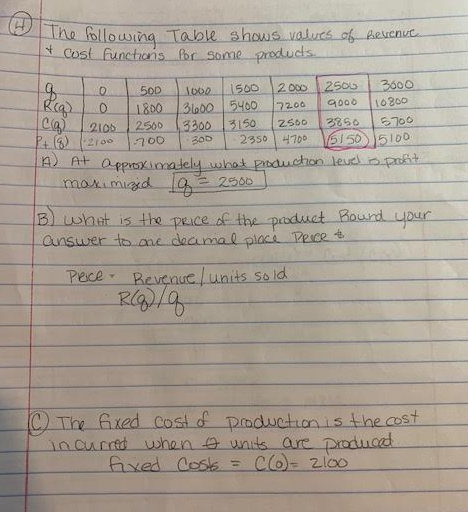 4) The following Table shows values of Revenue
& cost functions for some products.
q 0 500 1000 1500 2000 2500 3000
R(q) 0 1800 3600 5400 7200 9000 10800
C(q) 2100 2500 3300 3150 2500 3850 5700
-2100 -700 300 2350 4700 5150 5100
A) At approximately what production level is profit
maximized q = 2500
B) what is the price of the product Round your
answer to one decimal place Price $
Price = Revenue/units sold
R(q)/q
C) The fixed cost of production is the cost
incurred when units are produced.
fixed costs = C(0) = 2100